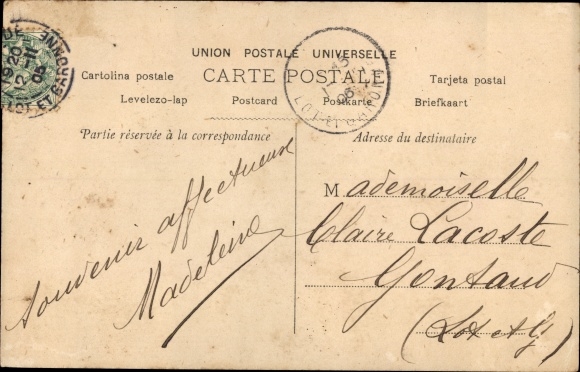 UNION POSTALE UNIVERSELLE
Cartolina postale CARTE POSTALE Tarjeta postal
Levelezo-lap Postcard Postkarte Briefkaart
Partie réservée à la correspondance
Adresse du destinataire
Souvenir affectueux
Madeleine
Mademoiselle
Claire Lacoste
Gontaud
(Lot et G)
LOT ET GARONNE